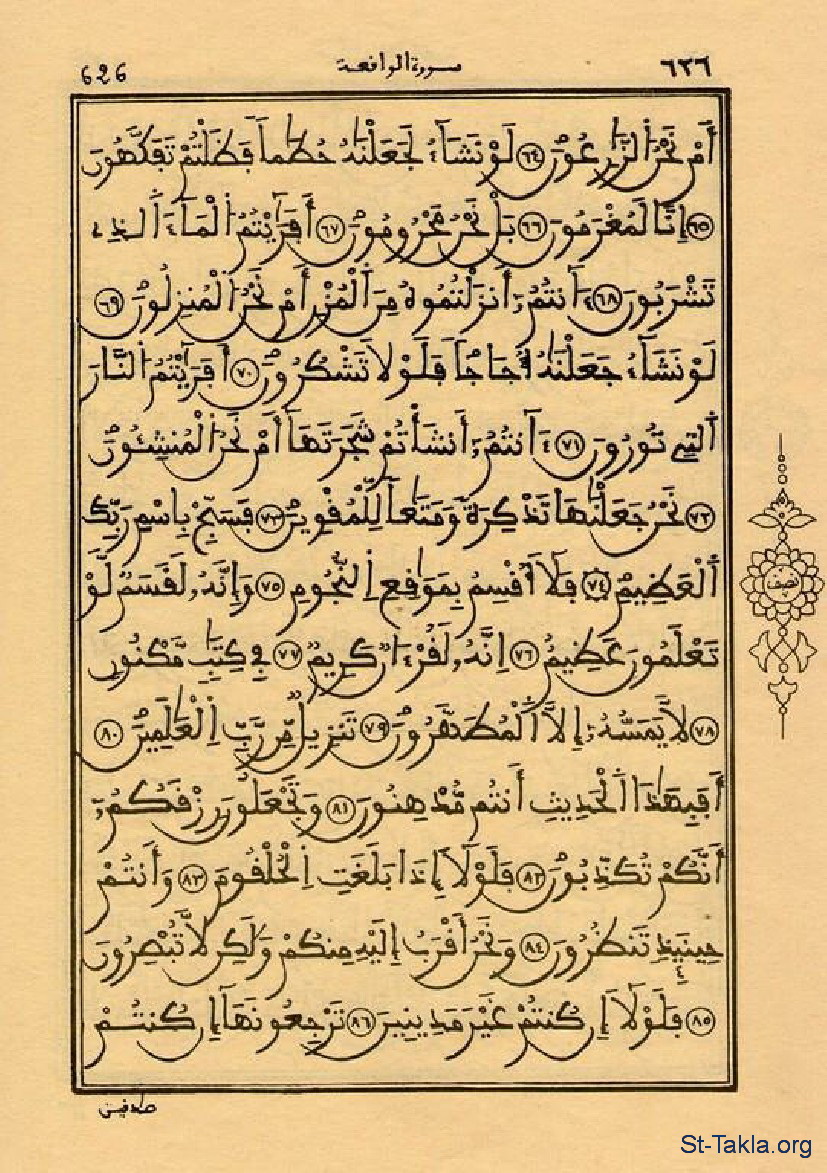 626 سورة الواقعة ٦٢٦
أَمْ نَحْنُ اُلزَّٰرِعُونَ ٦٤ لَوْ نَشَآءُ لَجَعَلْنَٰهُ حُطَٰماً فَظَلْتُمْ تَفَكَّهُونَ
٦٥ إِنَّا لَمُغْرَمُونَ ٦٦ بَلْ نَحْنُ مَحْرُومُونَ ٦٧ أَفَرَٰٓيْتُمُ اُلْمَآءَ اَلذِے
تَشْرَبُونَ ٦٨ ءَآنتُمُۥٓ أَنزَلْتُمُوهُ مِنَ اَلْمُزْنِ أَمْ نَحْنُ اُلْمُنزِلُونَ ٦٩
لَوْ نَشَآءُ جَعَلْنَٰهُ أُجَاجاً فَلَوْلَا تَشْكُرُونَ ٧٠ أَفَرَٰٓيْتُمُ اُلنَّارَ
اَلتِے تُورُونَ ٧١ ءَآنتُمُۥٓ أَنشَأْتُمْ شَجَرَتَهَآ أَمْ نَحْنُ اُلْمُنشِـُٔونَ
٧٢ نَحْنُ جَعَلْنَٰهَا تَذْكِرَةً وَمَتَٰعاً لِّلْمُقْوِينَ ٧٣ فَسَبِّحْ بِاسْمِ رَبِّكَ
اَلْعَظِيمِ ٧٤ فَلَآ أُقْسِمُ بِمَوَٰقِعِ اِلنُّجُومِ ٧٥ وَإِنَّهُۥ لَقَسَمٌ لَّوْ
تَعْلَمُونَ عَظِيمٌ ٧٦ اِنَّهُۥ لَقُرْءَانٌ كَرِيمٌ ٧٧ فِے كِتَٰبٍ مَّكْنُونٍ
٧٨ لَّا يَمَسُّهُۥٓ إِلَّا اَلْمُطَهَّرُونَ ٧٩ تَنزِيلٌ مِّن رَّبِّ اِلْعَٰلَمِينَ ٨٠
أَفَبِهَٰذَا اَلْحَدِيثِ أَنتُم مُّدْهِنُونَ ٨١ وَتَجْعَلُونَ رِزْقَكُمُۥٓ
أَنَّكُمْ تُكَذِّبُونَ ٨٢ فَلَوْلَآ إِذَا بَلَغَتِ اِلْحُلْقُومَ ٨٣ وَأَنتُمْ
حِينَئِذٍ تَنظُرُونَ ٨٤ وَنَحْنُ أَقْرَبُ إِلَيْهِ مِنكُمْ وَلَٰكِن لَّا تُبْصِرُونَ
٨٥ فَلَوْلَآ إِن كُنتُمْ غَيْرَ مَدِينِينَ ٨٦ تَرْجِعُونَهَآ إِن كُنتُمْ
صَٰدِقين
نصف
St-Takla.org